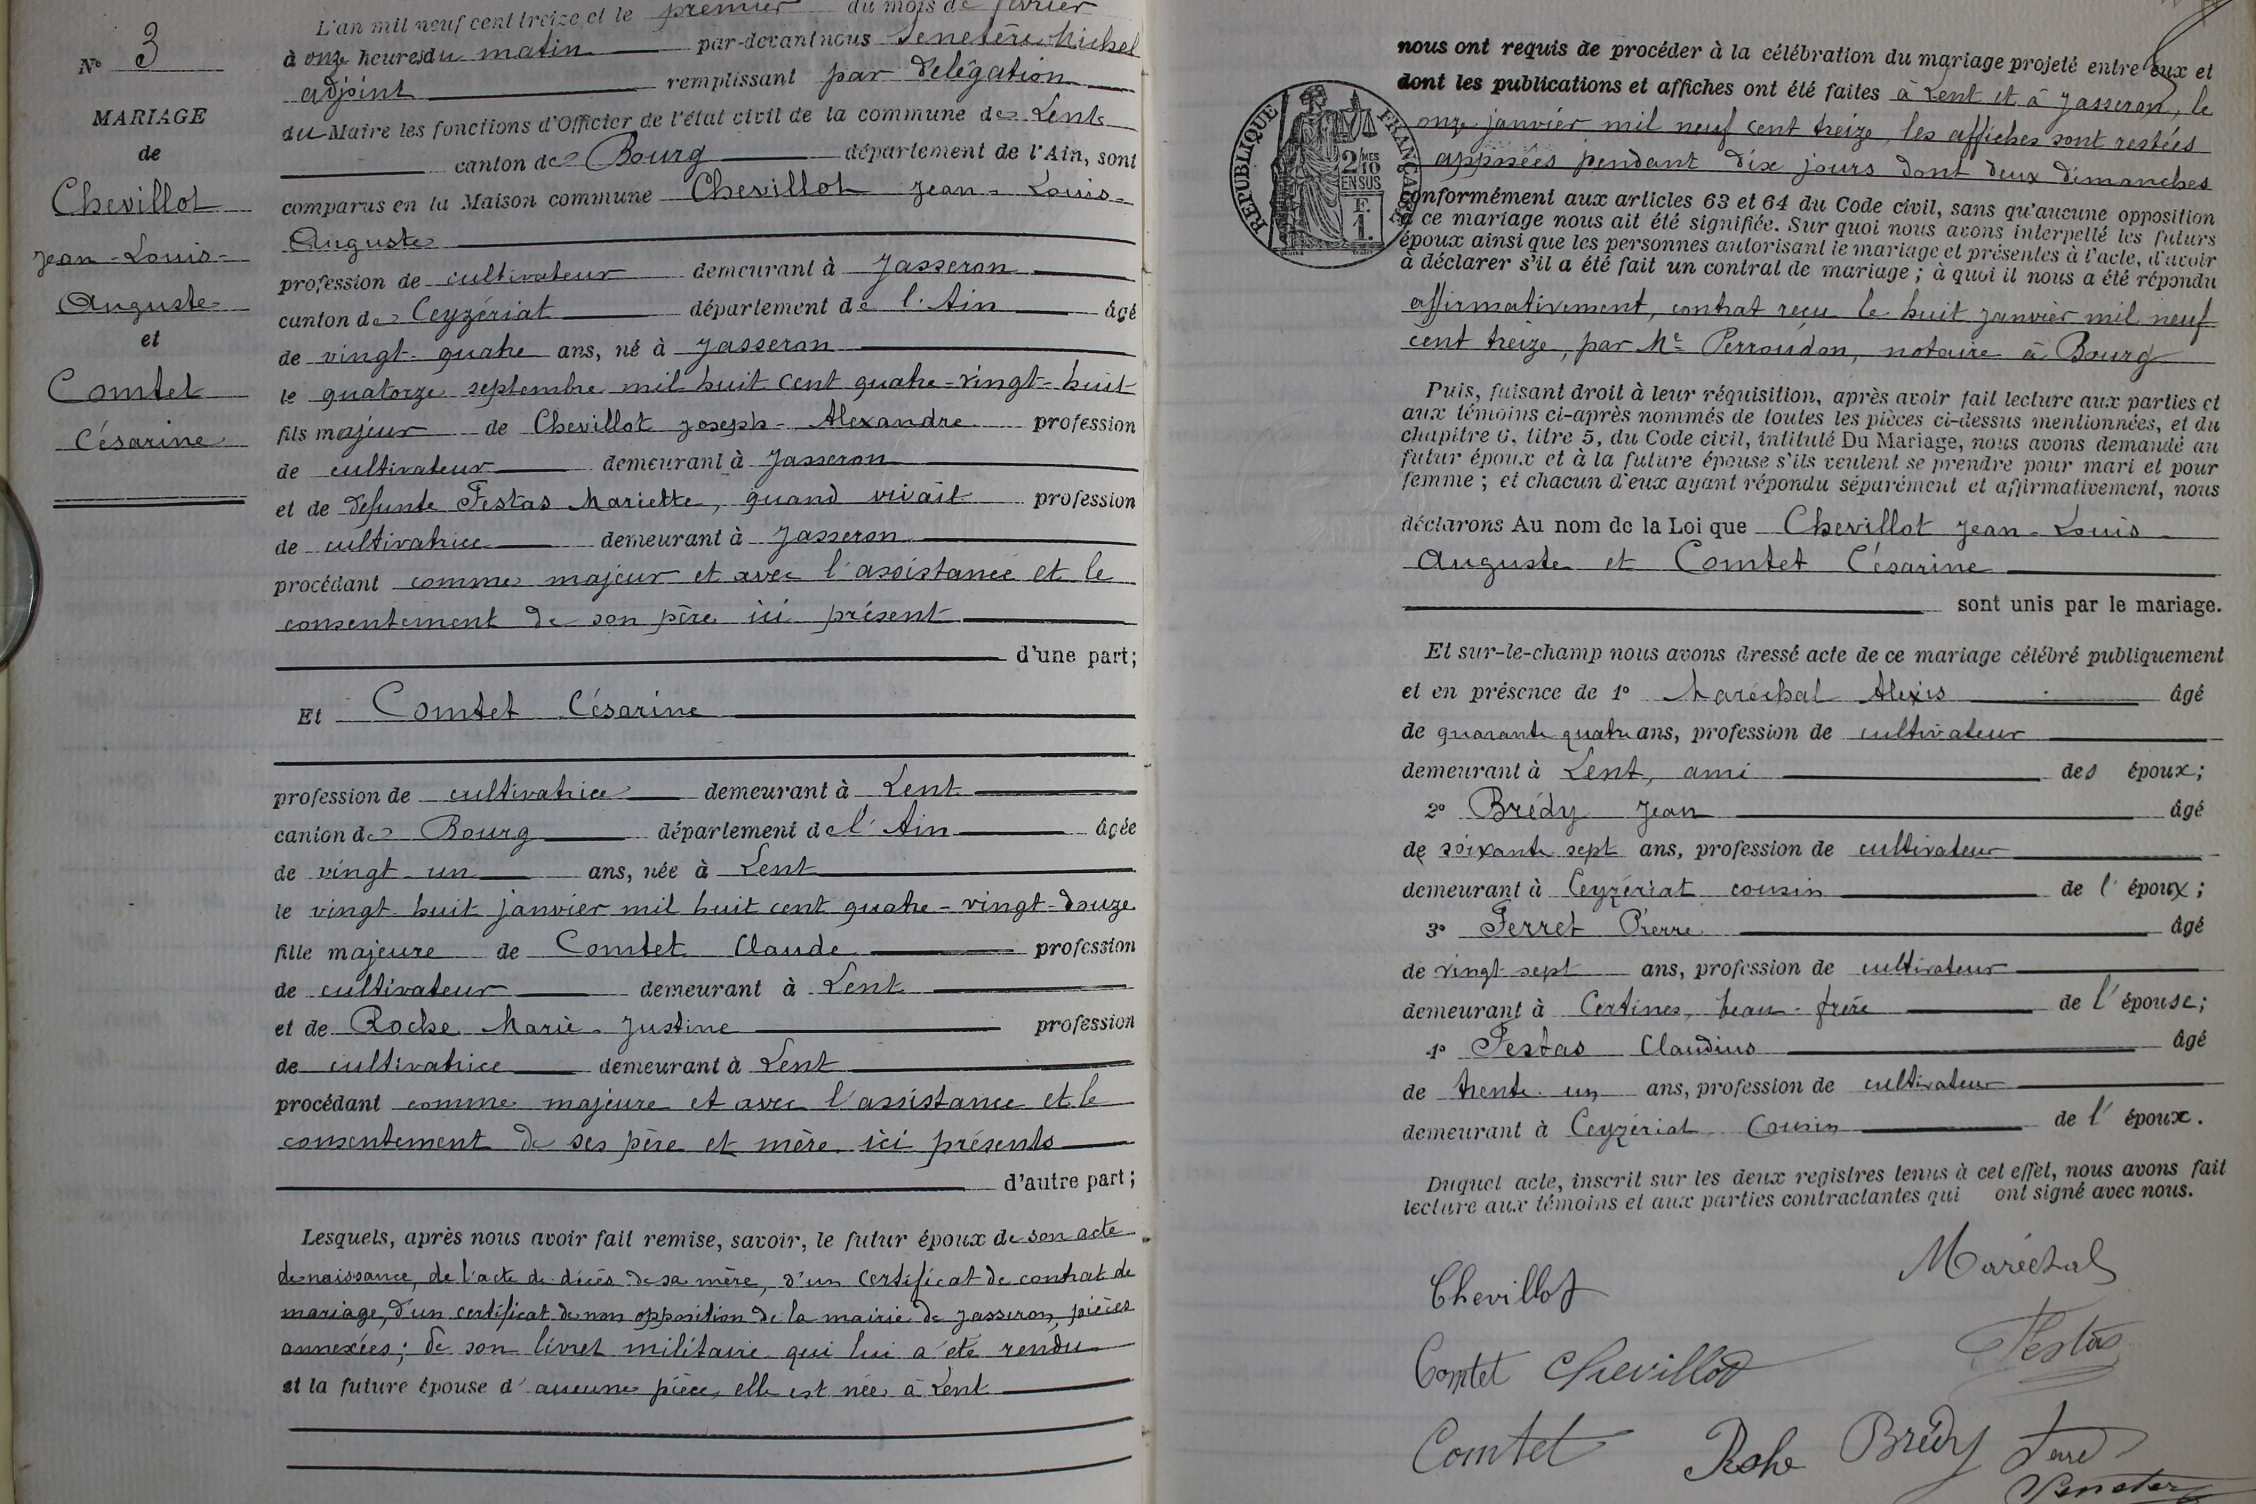 N° 3
MARIAGE
de
Chevillot
Jean-Louis-
Auguste
et
Comtet
Césarine
L'an mil neuf cent treize et le premier du mois de février
à onze heures du matin par-devant nous Senetère Michel
adjoint remplissant par délégation
du Maire les fonctions d'Officier de l'état civil de la commune de Lent
canton de Bourg département de l'Ain, sont
comparus en la Maison commune Chevillot Jean-Louis-
Auguste
profession de cultivateur demeurant à Jasseron
canton de Ceyzériat département de l'Ain âgé
de vingt-quatre ans, né à Jasseron
le quatorze septembre mil huit cent quatre-vingt-huit
fils majeur de Chevillot Joseph-Alexandre profession
de cultivateur demeurant à Jasseron
et de défunte Festas Mariette, quand vivait profession
de cultivatrice demeurant à Jasseron
procédant comme majeur et avec l'assistance et le
consentement de son père ici présent
d'une part;
Et Comtet Césarine
profession de cultivatrice demeurant à Lent
canton de Bourg département de l'Ain âgée
de vingt-un ans, née à Lent
le vingt-huit janvier mil huit cent quatre-vingt-douze
fille majeure de Comtet Claude profession
de cultivateur demeurant à Lent
et de Roche Marie-Justine profession
de cultivatrice demeurant à Lent
procédant comme majeure et avec l'assistance et le
consentement de ses père et mère ici présents
d'autre part;
Lesquels, après nous avoir fait remise, savoir, le futur époux de son acte
de naissance, de l'acte de décès de sa mère, d'un certificat de contrat de
mariage, d'un certificat de non opposition de la mairie de Jasseron, pièces
annexées; de son livret militaire qui lui a été rendu
et la future épouse d'aucune pièce, elle est née à Lent
nous ont requis de procéder à la célébration du mariage projeté entre eux et
dont les publications et affiches ont été faites à Lent et à Jasseron, le
onze janvier mil neuf cent treize, les affiches sont restées
apposées pendant dix jours dont deux dimanches
conformément aux articles 63 et 64 du Code civil, sans qu'aucune opposition
à ce mariage nous ait été signifiée. Sur quoi nous avons interpellé les futurs
époux ainsi que les personnes autorisant le mariage et présentes à l'acte, d'avoir
à déclarer s'il a été fait un contrat de mariage; à quoi il nous a été répondu
affirmativement, contrat reçu le huit janvier mil neuf
cent treize, par Me Perroudon, notaire à Bourg
RÉPUBLIQUE FRANÇAISE
2/10 MES
EN SUS
F.
1.
Puis, faisant droit à leur réquisition, après avoir fait lecture aux parties et
aux témoins ci-après nommés de toutes les pièces ci-dessus mentionnées, et du
chapitre 6, titre 5, du Code civil, intitulé Du Mariage, nous avons demandé au
futur époux et à la future épouse s'ils veulent se prendre pour mari et pour
femme; et chacun d'eux ayant répondu séparément et affirmativement, nous
déclarons Au nom de la Loi que Chevillot Jean-Louis-
Auguste et Comtet Césarine
sont unis par le mariage.
Et sur-le-champ nous avons dressé acte de ce mariage célébré publiquement
et en présence de 1° Maréchal Alexis âgé
de quarante quatre ans, profession de cultivateur
demeurant à Lent, ami des époux;
2° Brédy Jean âgé
de soixante sept ans, profession de cultivateur
demeurant à Ceyzériat cousin de l'époux;
3° Ferret Pierre âgé
de vingt-sept ans, profession de cultivateur
demeurant à Certines, beau-frère de l'épouse;
4° Festas Claudius âgé
de trente-un ans, profession de cultivateur
demeurant à Ceyzériat, Cousin de l'époux.
Duquel acte, inscrit sur les deux registres tenus à cet effet, nous avons fait
lecture aux témoins et aux parties contractantes qui ont signé avec nous.
Chevillot Maréchal
Comtet Chevillot Festas
Comtet Roche Brédy